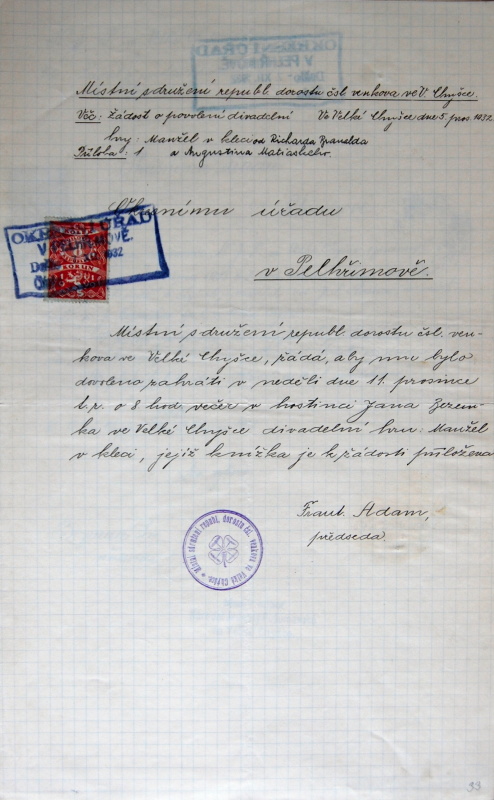 Místní sdružení republ. dorostu čsl. venkova ve V. Chyšce.
Věc: Žádost o povolení divadelní Ve Velké Chyšce dne 5. pros. 1932.
hry: Manžel v kleci od Richarda
Příloha: 1 a Augustina
OKRESNÍ ÚŘAD
V PELHŘIMOVĚ.
Došlo 1932
Okresnímu úřadu
v Pelhřimově.
Místní sdružení republ. dorostu čsl. ven-
kova ve Velké Chyšce, žádá, aby mu bylo
dovoleno zahráti v neděli dne 11. prosince
t. r. o 8 hod. večer v hostinci Jana
ve Velké Chyšce divadelní hru: Manžel
v kleci, jejíž knížka je k žádosti přiložena
Frant. Adam,
předseda.
Místní sdružení republ. dorostu čsl. venkova ve Velké Chyšce.
33